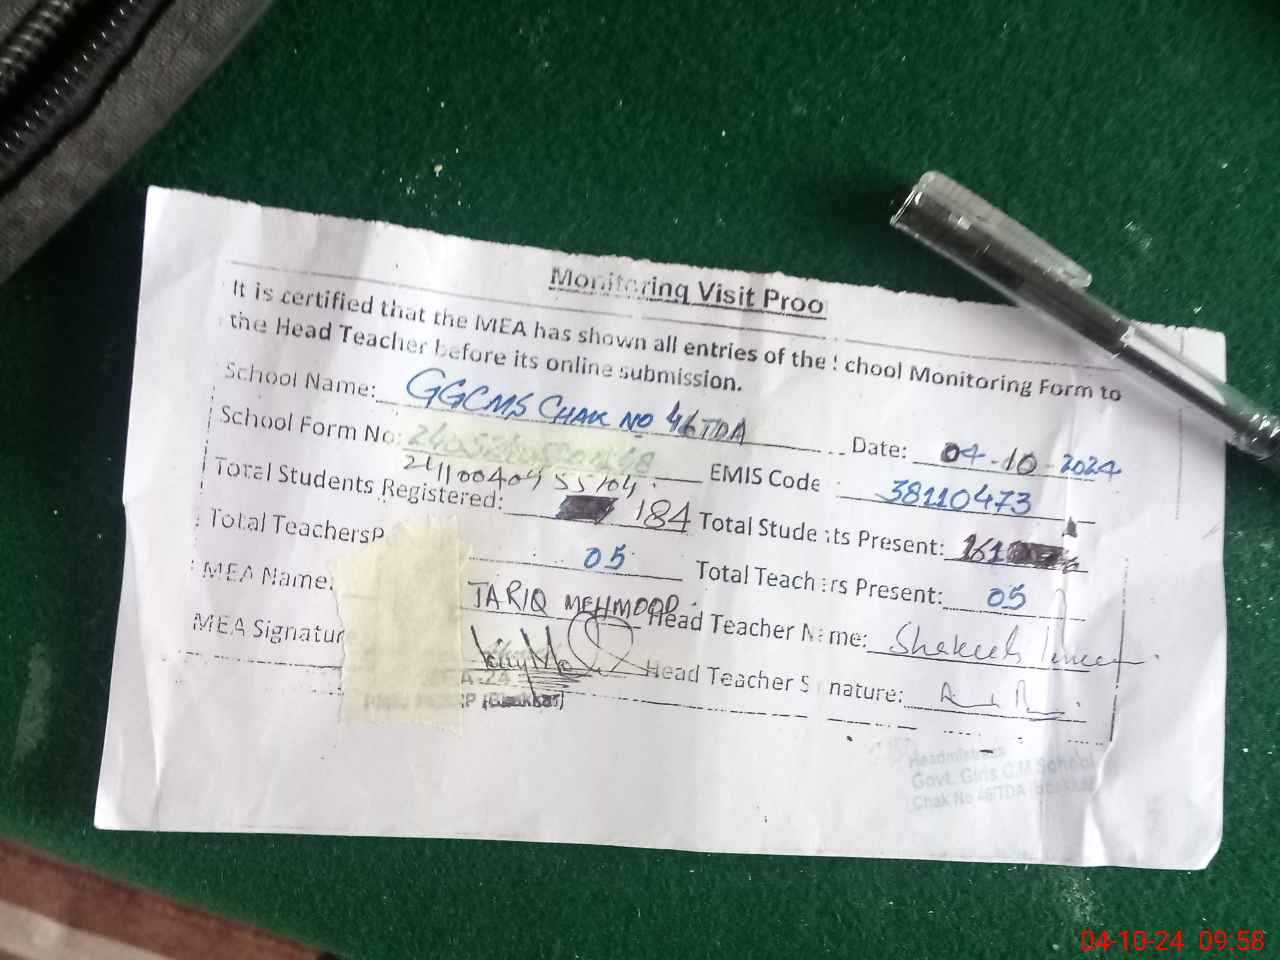 Monitoring Visit Proo
It is certified that the MEA has shown all entries of the chool Monitoring Form to
the Head Teacher before its online submission.
School Name: GGCMS CHAK NO 46TDA Date: 04-10-2024
School Form No: EMIS Code: 38110473
Total Students Registered: 184 Total Students Present: 161
Total Teachers P 05 Total Teachers Present: 05
MEA Name: TARIQ MEHMOOD Head Teacher Name: Shakeela
MEA Signature Head Teacher S nature:
A-24
P (Bhakkar)
Headmistress
Govt. Girls C.M School
Chak No 46/TDA Bhakkar
04-10-24 09:58